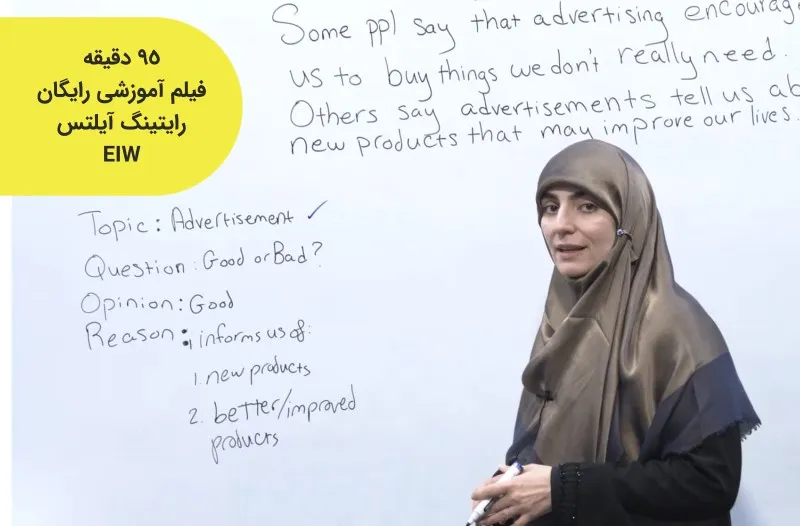 ۹۵ دقیقه
فیلم آموزشی رایگان
رایتینگ آیلتس
EIW
Some ppl say that advertising encourag
us to buy things we don't really need.
Others say advertisements tell us ab
new products that may improve our lives.
Topic: Advertisement ✓
Question: Good or Bad?
Opinion: Good
Reason: informs us of:
1. new products
2. better/improved
products